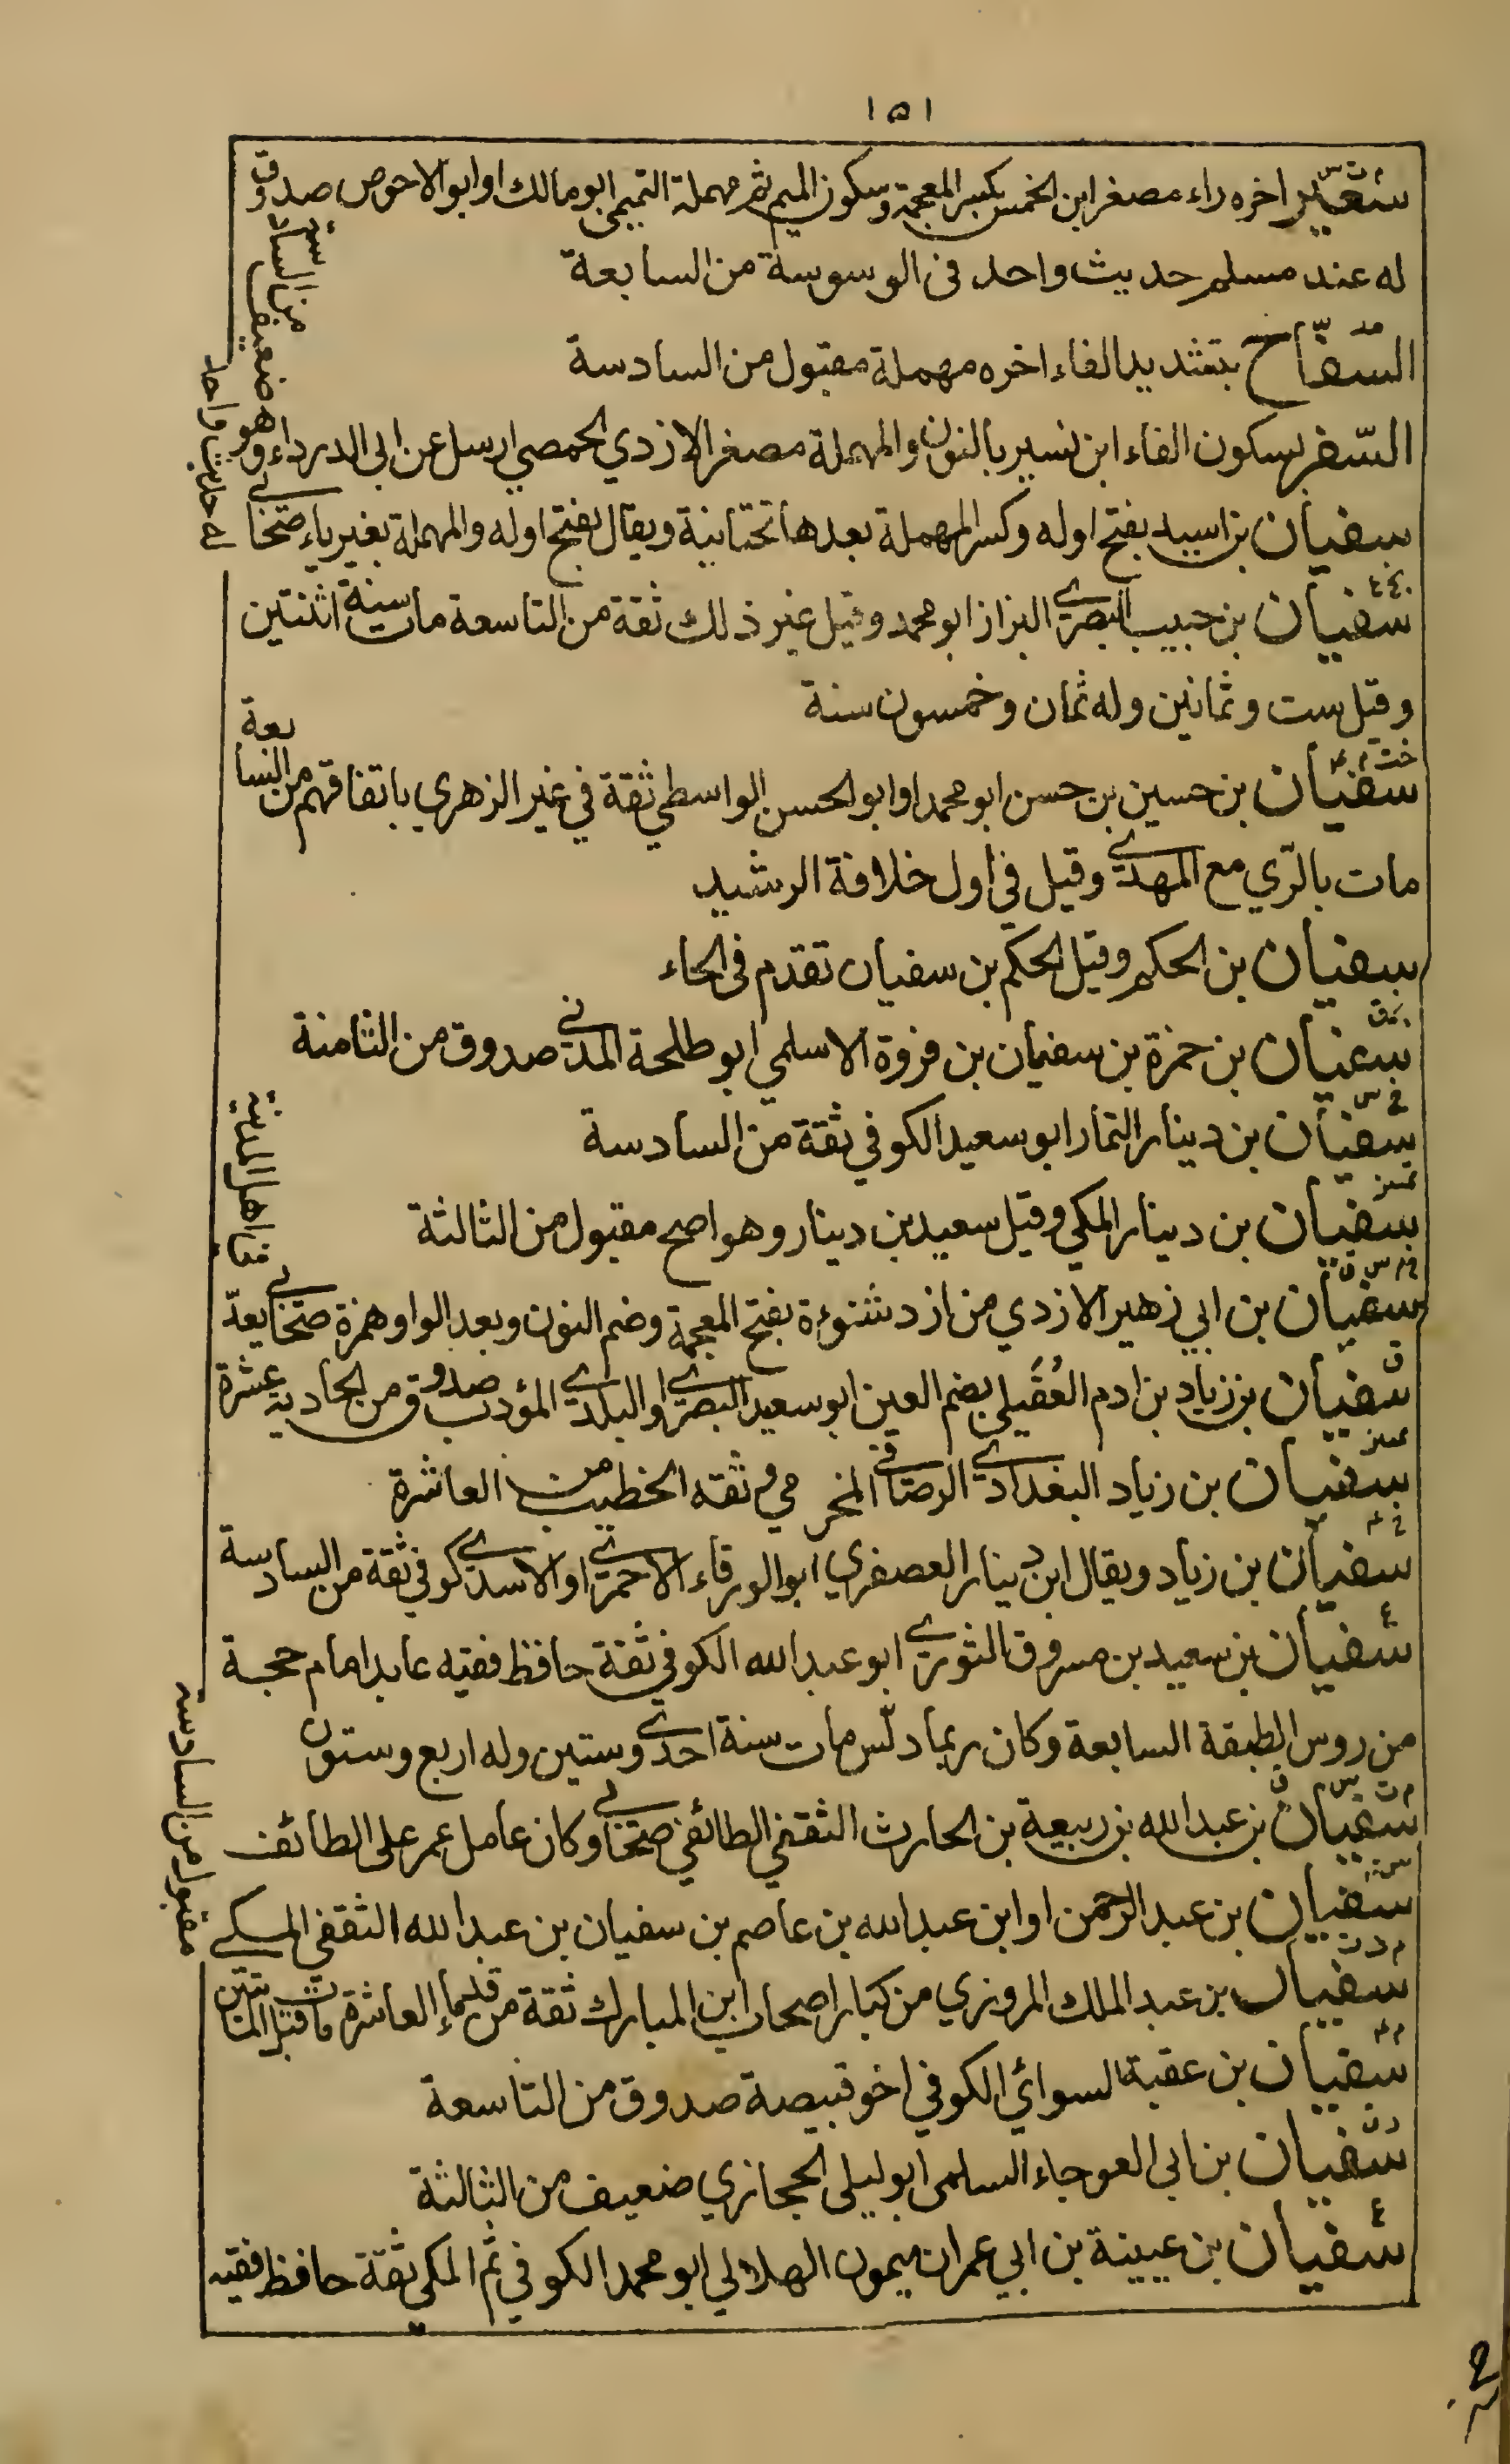 ١٥١
م ت س
سعير اخره راء مصغر ابن الخمس بكسر المعجمة وسكون الميم ثم مهملة التميمي ابو مالك او ابو الاحوص صدوق
له عند مسلم حديث واحد فى الوسوسة من السابعة
السفّاح بتشديد الفاء اخره مهملة مقبول من السادسة
السّفر بسكون الفاء ابن نسير بالنون والمهملة مصغر الازدي الحمصي ارسل عن ابى الدرداء وهو ضعيف من السادسة
سفيان بن اسيد بفتح اوله وكسر المهملة بعدها تحتانية ويقال بفتح اوله والمهملة بغير ياء صحابى له حديث واحد
سفيان بن حبيب البصري البزاز ابو محمد وقيل غير ذلك ثقة من التاسعة مات سنة اثنتين
وقيل ست وثمانين وله ثمان وخمسون سنة
خت م عم
سفيان بن حسين بن حسن ابو محمد او ابو الحسن الواسطي ثقة في غير الزهري باتفاقهم من السابعة
مات بالرّي مع المهدي وقيل في اول خلافة الرشيد
سفيان بن الحكم وقيل الحكم بن سفيان تقدم فى الحاء
سفيان بن حمزة بن سفيان بن فروة الاسلمي ابو طلحة المدني صدوق من الثامنة
خ س
سفيان بن دينار التمار ابو سعيد الكوفي ثقة من السادسة
سفيان بن دينار المكي وقيل سعيد بن دينار وهو اصح مقبول من الثالثة
خ م س ق
سفيان بن ابي زهير الازدي من ازد شنوءة بفتح المعجمة وضم النون وبعد الواو همزة صحابى يعدّ فى اهل المدينة
ق
سفيان بن زياد بن ادم العُقَيلي بضم العين ابو سعيد البصري او البلدي المؤدب صدوق من الحادية عشرة
سفيان بن زياد البغدادي الرصافي المخرمي وثقه الخطيب من العاشرة
خ عم
سفيان بن زياد ويقال ابن دينار العصفري ابو الورقاء الاحمري او الاسدي كوفي ثقة من السادسة
ع
سفيان بن سعيد بن مسروق الثوري ابو عبد الله الكوفي ثقة حافظ فقيه عابد امام حجة
من روس الطبقة السابعة وكان ربما دلّس مات سنة احدى وستين وله اربع وستون
م ت س ق
سفيان بن عبد الله بن ربيعة بن الحارث الثقفي الطائفي صحابى وكان عامل عمر على الطائف
س ق
سفيان بن عبد الرحمن او ابن عبد الله بن عاصم بن سفيان بن عبد الله الثقفي المكي مقبول من السادسة
م د ت
سفيان بن عبد الملك المروزي من كبار اصحاب ابن المبارك ثقة من قدماء العاشرة مات قبل المائتين
م عم
سفيان بن عقبة السوائي الكوفي اخو قبيصة صدوق من التاسعة
د ق
سفيان بن ابى العوجاء السلمى ابو ليلى الحجازي ضعيف من الثالثة
ع
سفيان بن عيينة بن ابي عمران ميمون الهلالي ابو محمد الكوفي ثم المكي ثقة حافظ فقيه